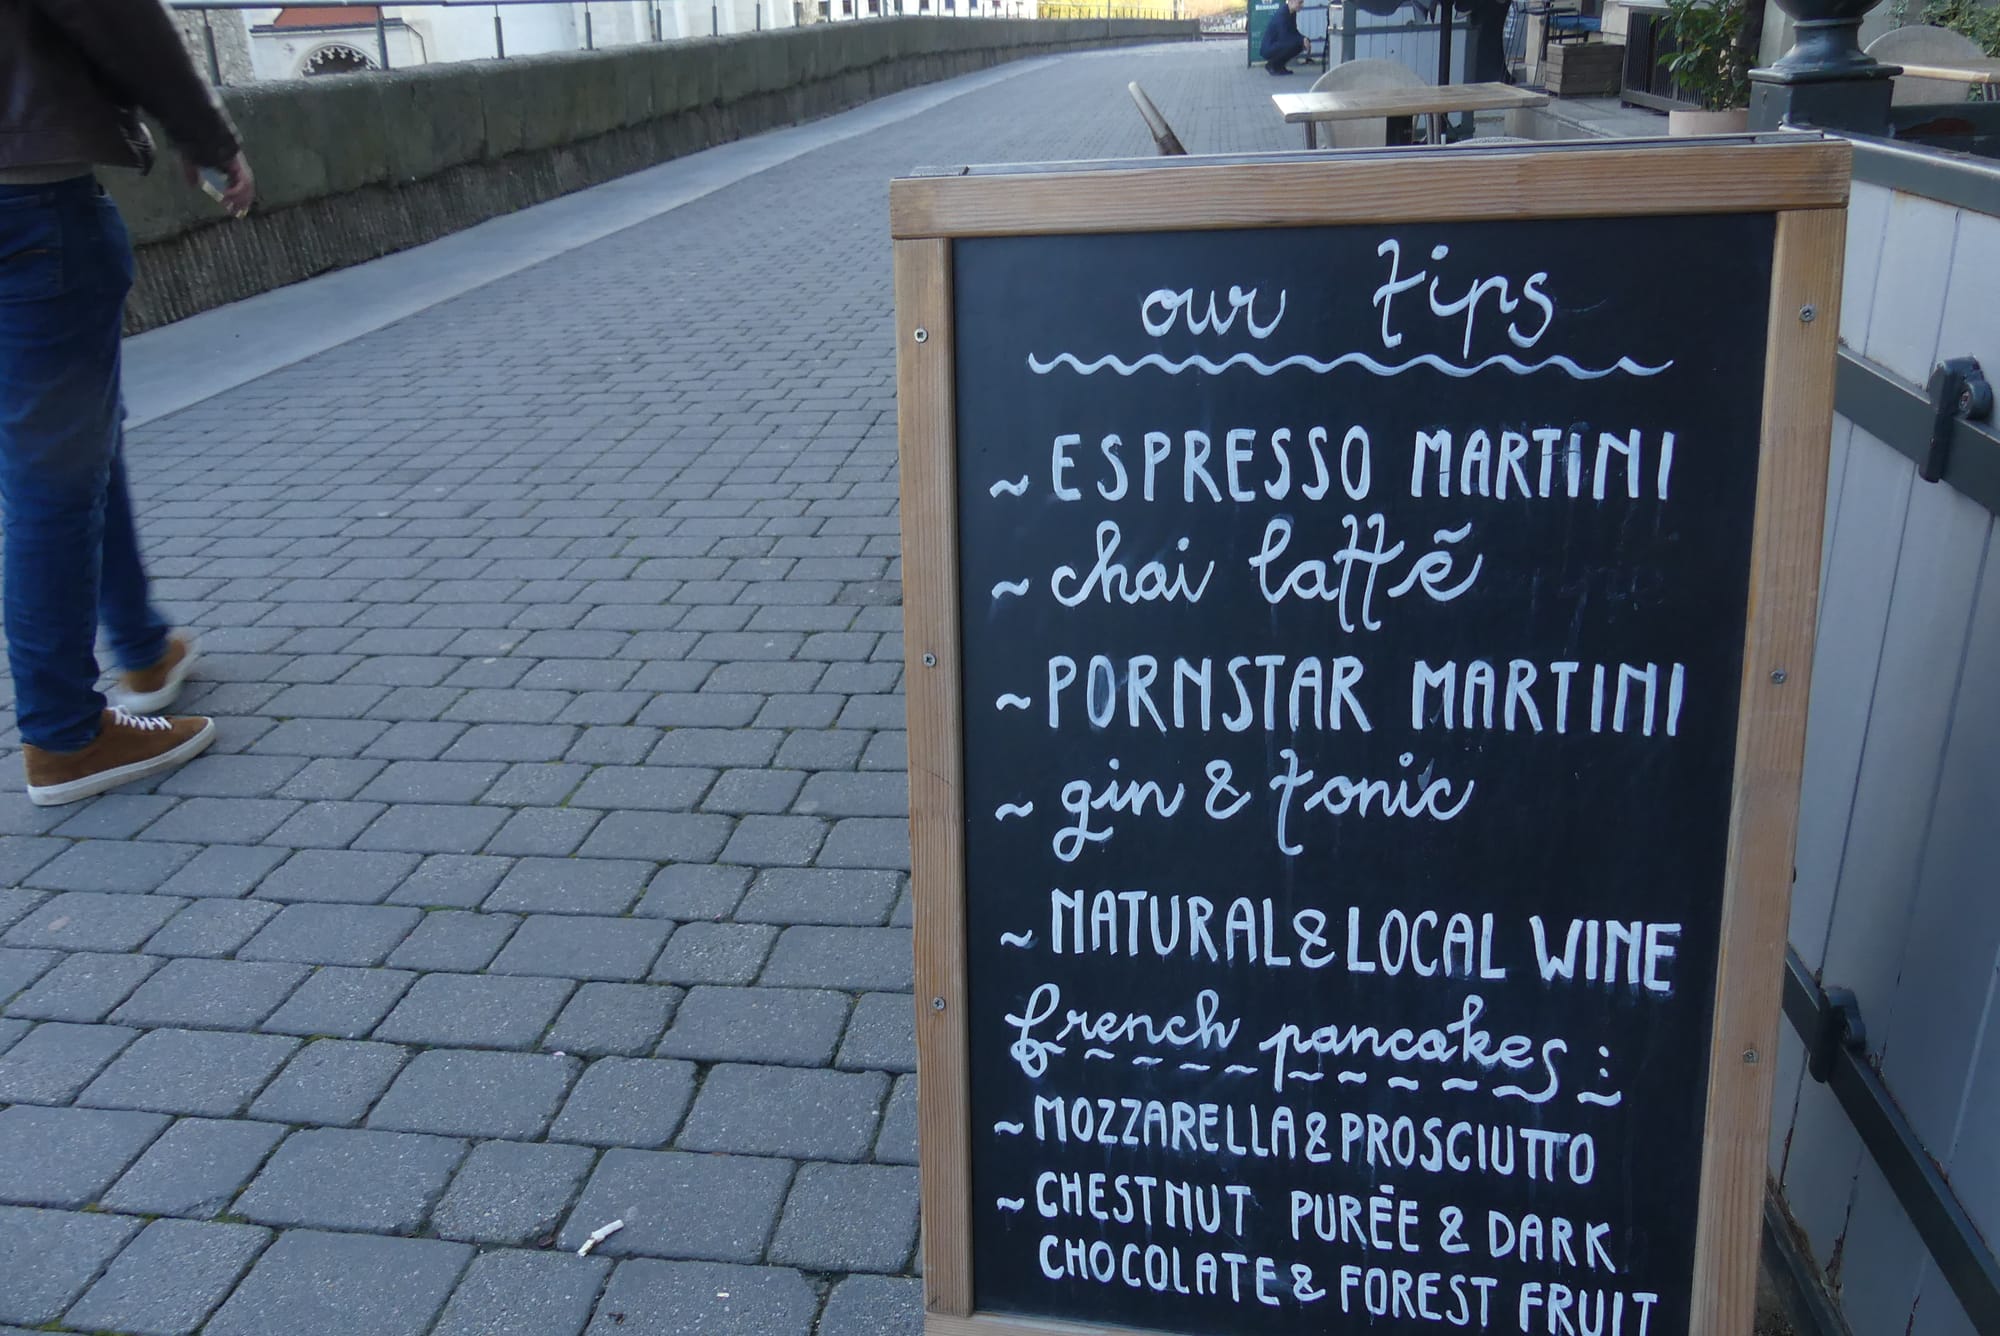 our tips
~ ESPRESSO MARTINI
~ chai lattē
~ PORNSTAR MARTINI
~ gin & tonic
~ NATURAL & LOCAL WINE
french pancakes:
~ MOZZARELLA & PROSCIUTTO
~ CHESTNUT PURĒE & DARK
CHOCOLATE & FOREST FRUIT